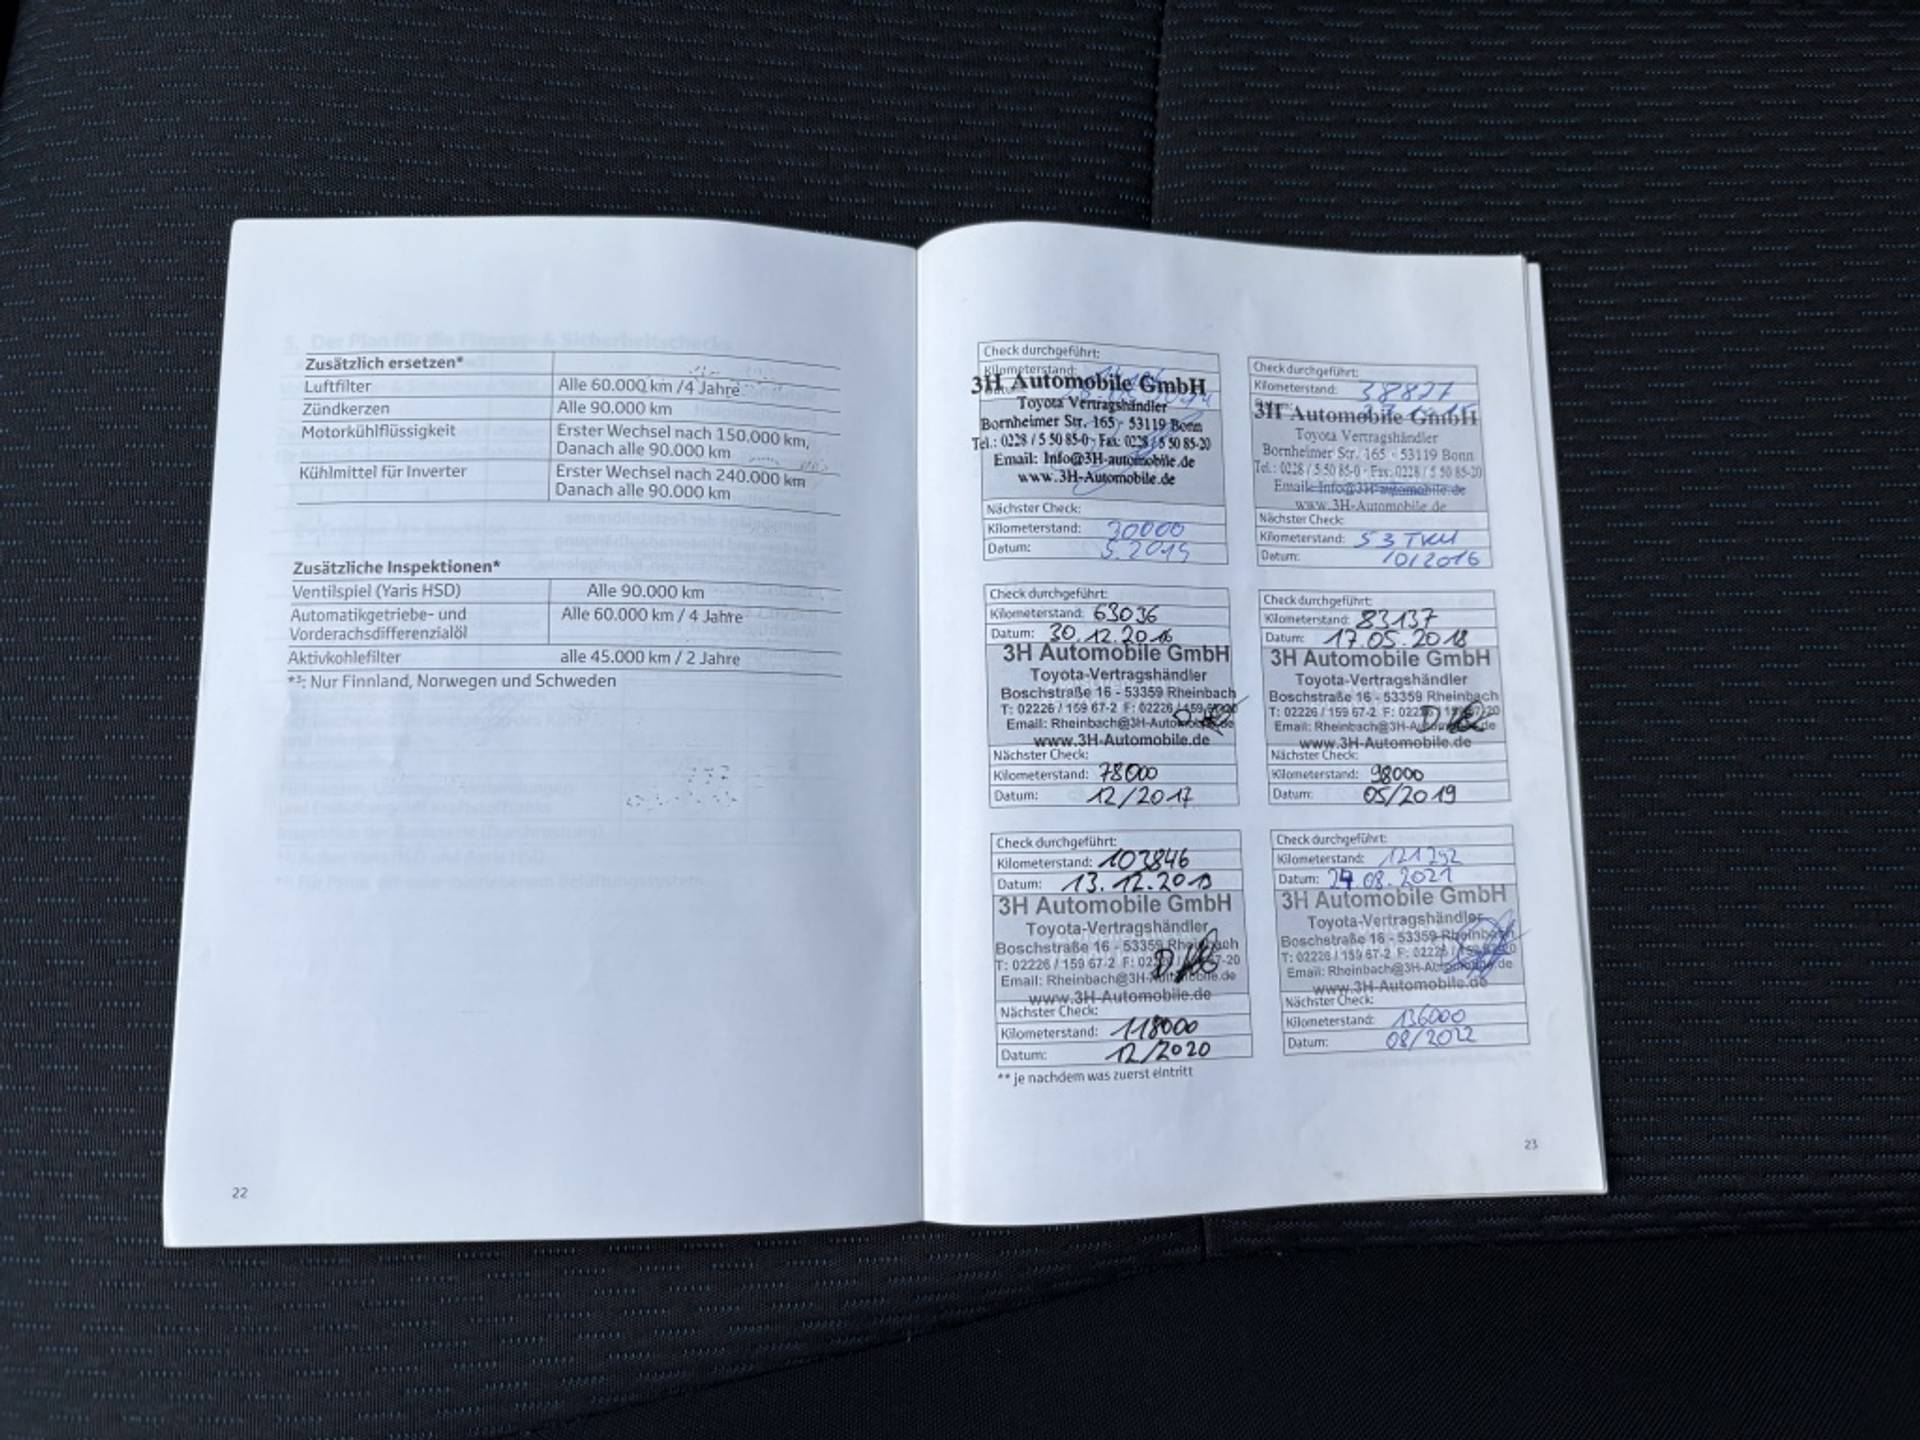 Zusätzlich ersetzen*
Luftfilter Alle 60.000 km /4 Jahre
Zündkerzen Alle 90.000 km
Motorkühlflüssigkeit Erster Wechsel nach 150.000 km,
Danach alle 90.000 km
Kühlmittel für Inverter Erster Wechsel nach 240.000 km
Danach alle 90.000 km
Zusätzliche Inspektionen*
Ventilspiel (Yaris HSD) Alle 90.000 km
Automatikgetriebe- und Alle 60.000 km / 4 Jahre
Vorderachsdifferenzialöl
Aktivkohlefilter alle 45.000 km / 2 Jahre
*³: Nur Finnland, Norwegen und Schweden
22
Check durchgeführt:
Kilometerstand:
3H Automobile GmbH
Toyota Vertragshändler
Bornheimer Str. 165 - 53119 Bonn
Tel.: 0228 / 5 50 85-0 - Fax: 0228 / 5 50 85-20
Email: Info@3H-automobile.de
www.3H-Automobile.de
Nächster Check:
Kilometerstand: 30000
Datum: 5.2015
Check durchgeführt:
Kilometerstand: 38827
3H Automobile GmbH
Toyota Vertragshändler
Bornheimer Str. 165 - 53119 Bonn
Tel.: 0228 / 5 50 85-0 - Fax: 0228 / 5 50 85-20
Email: Info@3H-automobile.de
www.3H-Automobile.de
Nächster Check:
Kilometerstand: 53 TKM
Datum: 10/2016
Check durchgeführt:
Kilometerstand: 63036
Datum: 30.12.2016
3H Automobile GmbH
Toyota-Vertragshändler
Boschstraße 16 - 53359 Rheinbach
T: 02226 / 159 67-2 F: 02226 / 159 67-20
Email: Rheinbach@3H-Automobile.de
www.3H-Automobile.de
Nächster Check:
Kilometerstand: 78000
Datum: 12/2017
Check durchgeführt:
Kilometerstand: 83137
Datum: 17.05.2018
3H Automobile GmbH
Toyota-Vertragshändler
Boschstraße 16 - 53359 Rheinbach
T: 02226 / 159 67-2 F: 02226 / 159 67-20
Email: Rheinbach@3H-Automobile.de
www.3H-Automobile.de
Nächster Check:
Kilometerstand: 98000
Datum: 05/2019
Check durchgeführt:
Kilometerstand: 103846
Datum: 13.12.2019
3H Automobile GmbH
Toyota-Vertragshändler
Boschstraße 16 - 53359 Rheinbach
T: 02226 / 159 67-2 F: 02226 / 159 67-20
Email: Rheinbach@3H-Automobile.de
www.3H-Automobile.de
Nächster Check:
Kilometerstand: 118000
Datum: 12/2020
Check durchgeführt:
Kilometerstand: 121292
Datum: 24.08.2021
3H Automobile GmbH
Toyota-Vertragshändler
Boschstraße 16 - 53359 Rheinbach
T: 02226 / 159 67-2 F: 02226 / 159 67-20
Email: Rheinbach@3H-Automobile.de
www.3H-Automobile.de
Nächster Check:
Kilometerstand: 136000
Datum: 08/2022
** je nachdem was zuerst eintritt
23